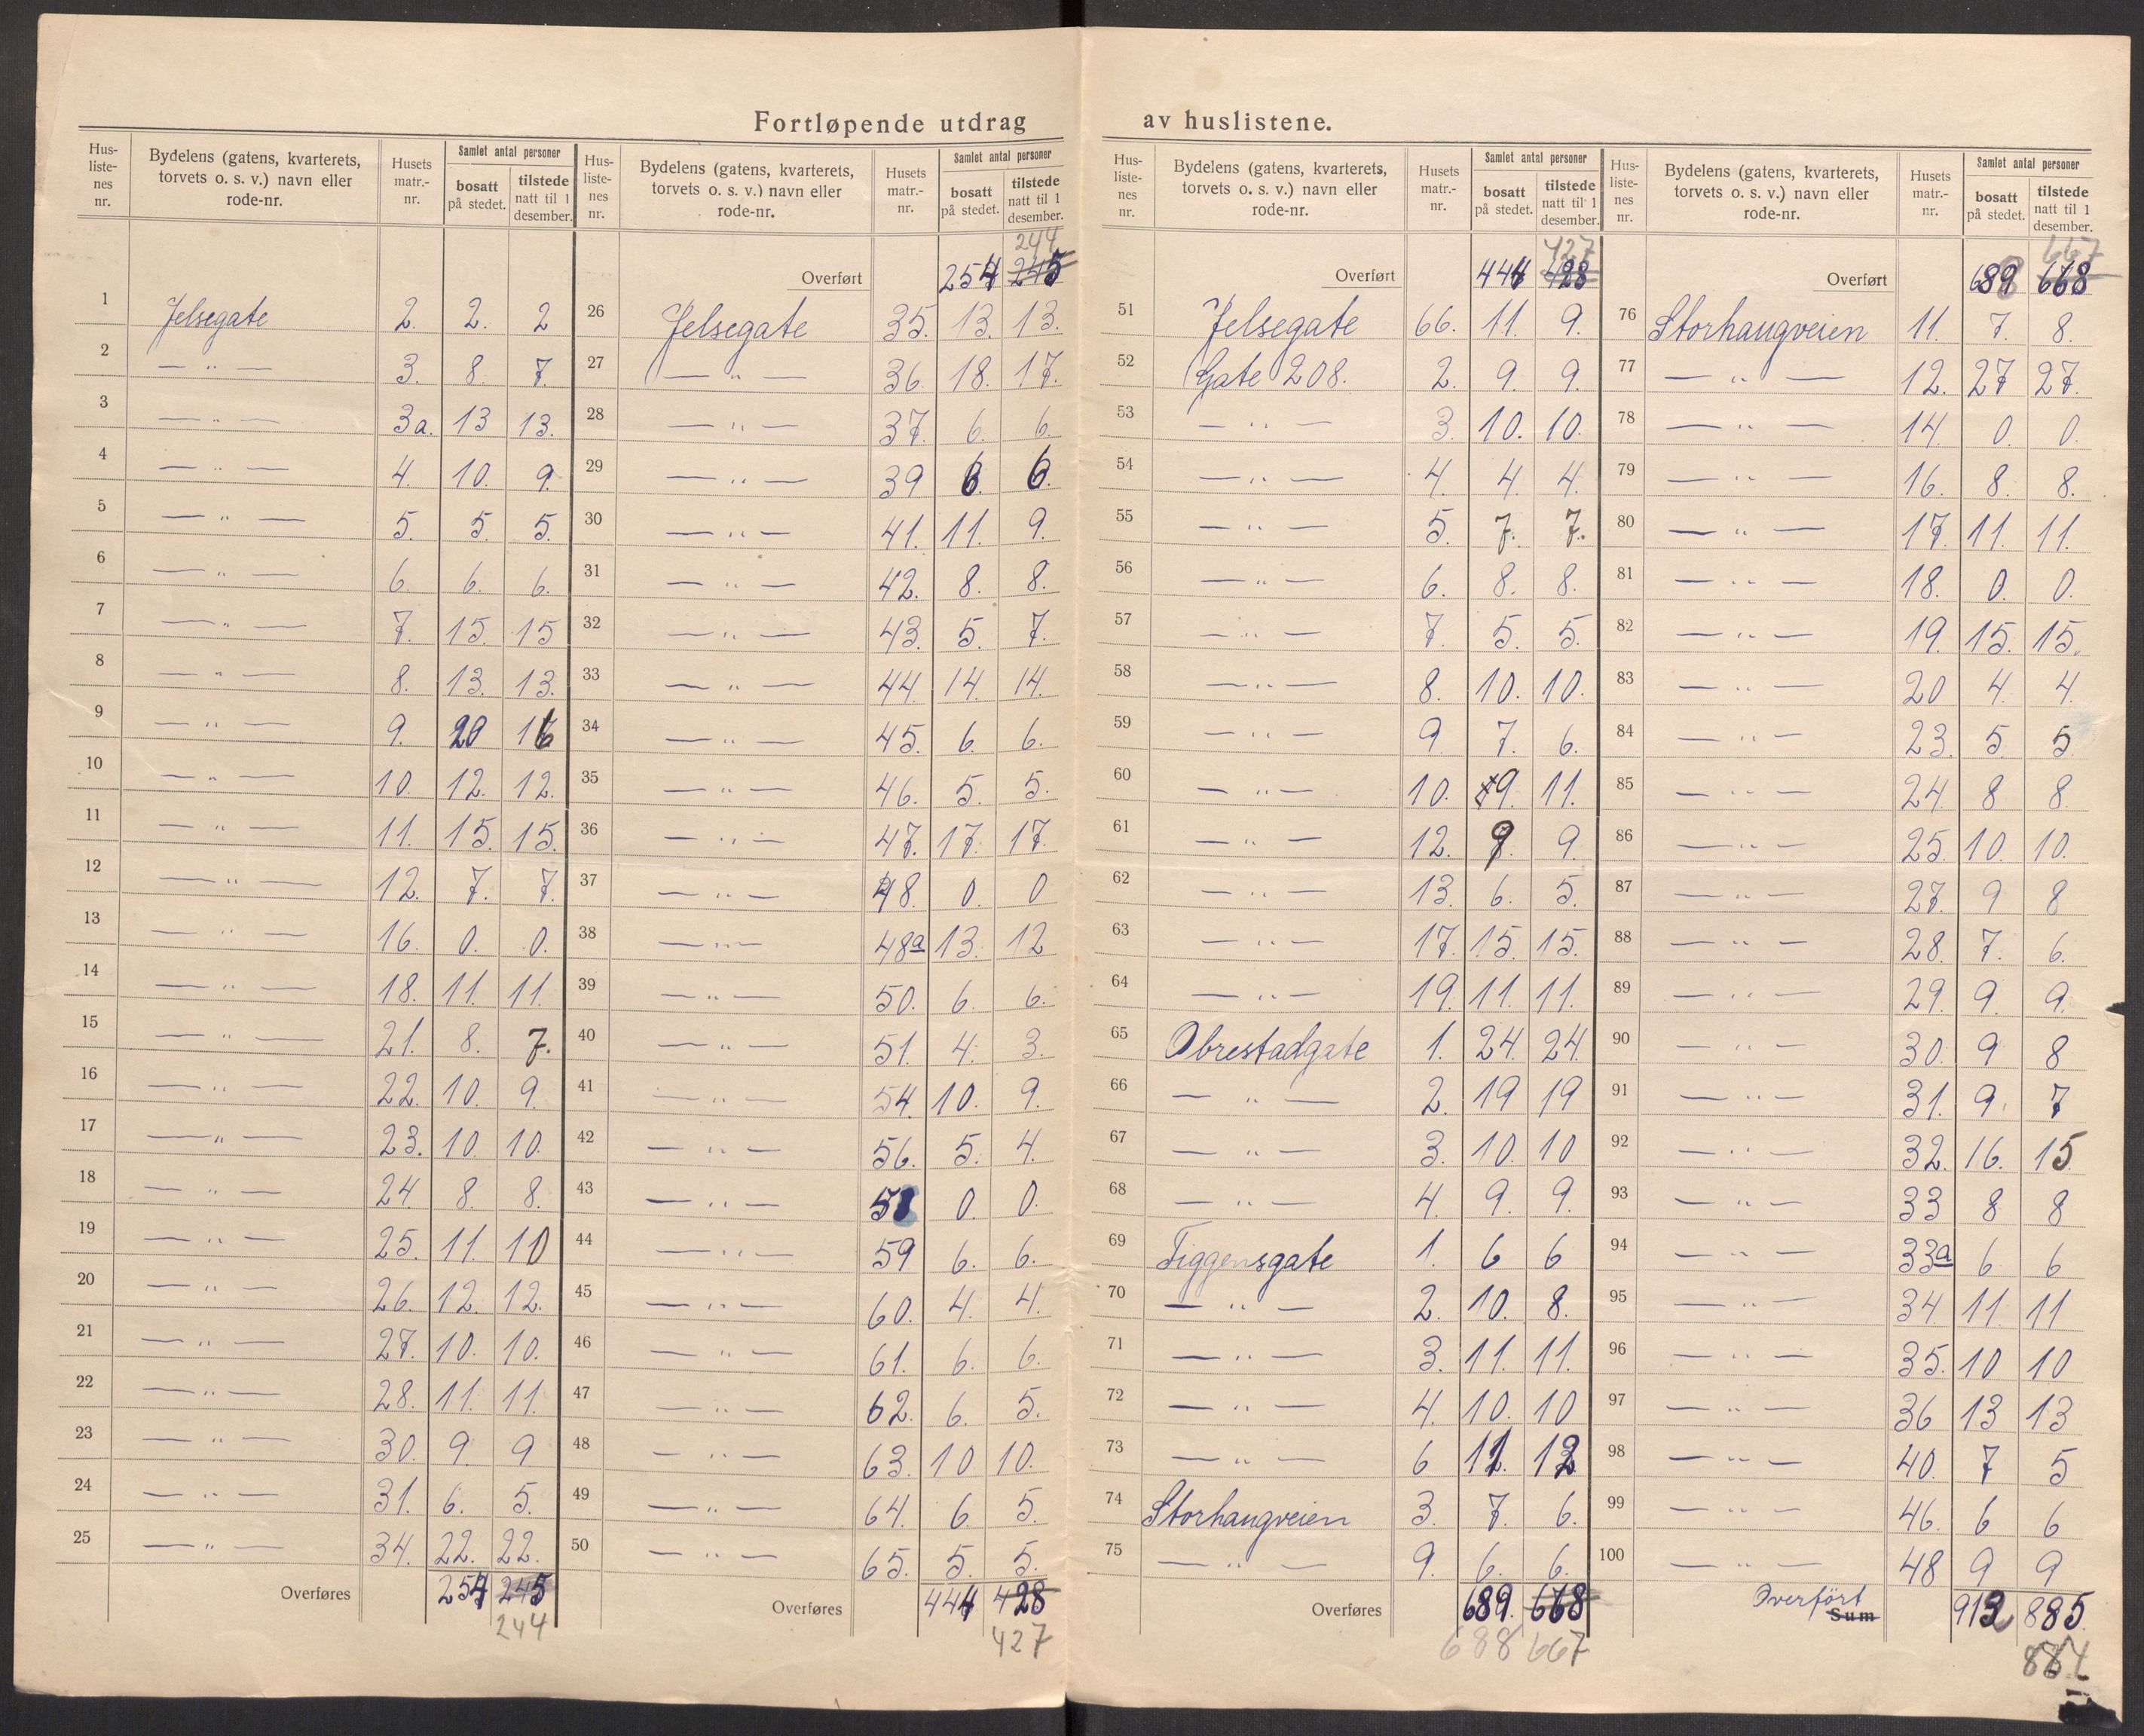 Fortløpende utdrag av huslistene.
Husliste-nes nr. | Bydelens (gatens, kvarterets, torvets o. s. v.) navn eller rode-nr. | Husets matr.-nr. | Samlet antal personer bosatt på stedet. | tilstede natt til 1 desember.
1 Jelsegate 2. 2. 2
2 — „ — 3. 8. 7.
3 — „ — 3a. 13 13.
4 — „ — 4. 10. 9.
5 — „ — 5. 5. 5.
6 — „ — 6. 6. 6.
7 — „ — 7. 15. 15
8 — „ — 8. 13. 13.
9 — „ — 9. 20 16
10 — „ — 10. 12. 12.
11 — „ — 11. 15. 15.
12 — „ — 12. 7. 7.
13 — „ — 16. 0. 0.
14 — „ — 18. 11. 11.
15 — „ — 21. 8. 7.
16 — „ — 22. 10. 9.
17 — „ — 23. 10. 10.
18 — „ — 24. 8. 8.
19 — „ — 25. 11. 10
20 — „ — 26. 12. 12.
21 — „ — 27. 10. 10.
22 — „ — 28. 11. 11.
23 — „ — 30. 9. 9
24 — „ — 31. 6. 5.
25 — „ — 34. 22. 22.
Overføres 254 245
244
Husliste-nes nr. | Bydelens (gatens, kvarterets, torvets o. s. v.) navn eller rode-nr. | Husets matr.-nr. | Samlet antal personer bosatt på stedet. | tilstede natt til 1 desember.
244
Overført 254 245
26 Jelsegate 35. 13. 13.
27 — „ — 36 18. 17.
28 — „ — 37. 6. 6.
29 — „ — 39 6. 6.
30 — „ — 41. 11. 9.
31 — „ — 42. 8. 8.
32 — „ — 43. 5. 7.
33 — „ — 44. 14. 14.
34 — „ — 45. 6. 6.
35 — „ — 46. 5. 5.
36 — „ — 47. 17. 17.
37 — „ — 48. 0. 0
38 — „ — 48a 13. 12
39 — „ — 50. 6. 6.
40 — „ — 51. 4. 3.
41 — „ — 54. 10. 9.
42 — „ — 56. 5. 4.
43 — „ — 58 0. 0.
44 — „ — 59 6. 6.
45 — „ — 60. 4. 4.
46 — „ — 61. 6. 6.
47 — „ — 62. 6. 5.
48 — „ — 63. 10 10.
49 — „ — 64. 6 5.
50 — „ — 65. 5. 5.
Overføres 444 428
427
Husliste-nes nr. | Bydelens (gatens, kvarterets, torvets o. s. v.) navn eller rode-nr. | Husets matr.-nr. | Samlet antal personer bosatt på stedet. | tilstede natt til 1 desember.
427
Overført 444 428
51 Jelsegate 66. 11. 9.
52 Gate 208. 2. 9. 9.
53 — „ — 3. 10. 10.
54 — „ — 4. 4. 4.
55 — „ — 5. 7. 7.
56 — „ — 6. 8. 8.
57 — „ — 7. 5. 5.
58 — „ — 8. 10. 10.
59 — „ — 9 7. 6.
60 — „ — 10. 9. 11.
61 — „ — 12. 9. 9.
62 — „ — 13. 6. 5.
63 — „ — 17. 15. 15.
64 — „ — 19. 11. 11.
65 Obrestadgate 1. 24. 24.
66 — „ — 2. 19 19
67 — „ — 3. 10. 10
68 — „ — 4. 9. 9.
69 Tiggensgate 1. 6 6
70 — „ — 2. 10. 8.
71 — „ — 3. 11. 11.
72 — „ — 4. 10. 10
73 — „ — 6 12. 12
74 Storhaugveien 3. 7. 6.
75 — „ — 9. 6. 6.
Overføres 689. 668
688 667
Husliste-nes nr. | Bydelens (gatens, kvarterets, torvets o. s. v.) navn eller rode-nr. | Husets matr.-nr. | Samlet antal personer bosatt på stedet. | tilstede natt til 1 desember.
667
Overført 689 668
76 Storhaugveien 11. 7. 8.
77 — „ — 12. 27 27.
78 — „ — 14. 0. 0.
79 — „ — 16. 8. 8.
80 — „ — 17. 11. 11.
81 — „ — 18. 0. 0.
82 — „ — 19. 15. 15.
83 — „ — 20 4. 4.
84 — „ — 23. 5. 5
85 — „ — 24 8 8
86 — „ — 25. 10. 10.
87 — „ — 27. 9 8
88 — „ — 28. 7. 6.
89 — „ — 29. 9. 9.
90 — „ — 30. 9 8
91 — „ — 31. 9. 7
92 — „ — 32. 16. 15
93 — „ — 33 8 8
94 — „ — 33a 6 6
95 — „ — 34. 11. 11
96 — „ — 35. 10 10
97 — „ — 36 13 13
98 — „ — 40. 7 5
99 — „ — 46. 6 6
100 — „ — 48 9 9
Overført
Sum 912 885.
884